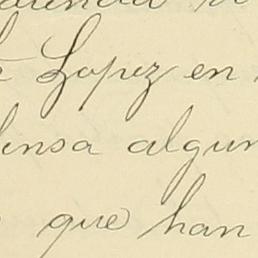 Lopez en
ensa algun
que han